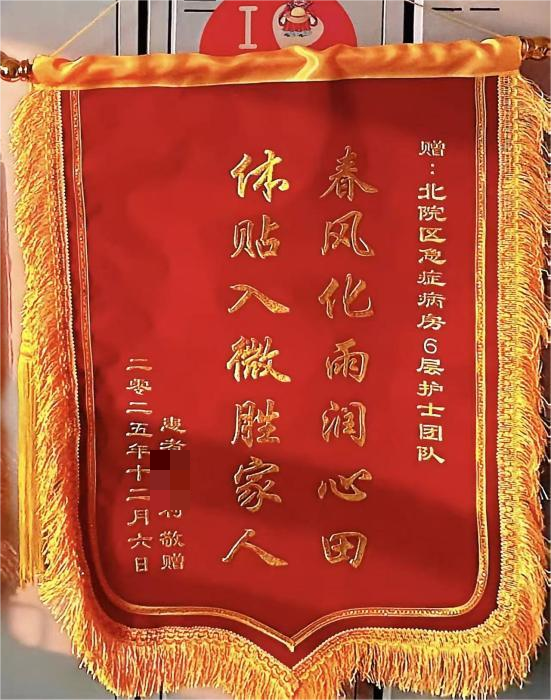 I
赠：北院区急症病房6层护士团队
春风化雨润心田
体贴入微胜家人
患者 敬赠
二零二五年十二月六日